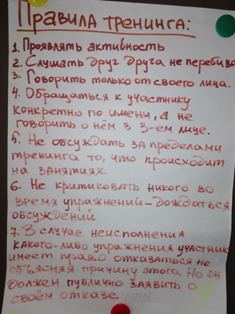 Правила тренинга:
1. Проявлять активность
2. Слушать друг друга не перебива
3. Говорить только от своего лица.
4. Обращаться к участнику
конкретно по имени, а не
говорить о нём в 3-ем лице.
5. Не обсуждать за пределами
тренинга то, что происходит
на занятиях.
6. Не критиковать никого во
время упражнений – дождаться
обсуждений.
7. В случае неисполнения
какого-либо упражнения участник
имеет право отказаться не
объясняя причину этого. Но он
должен публично заявить о
своём отказе. (стоп)